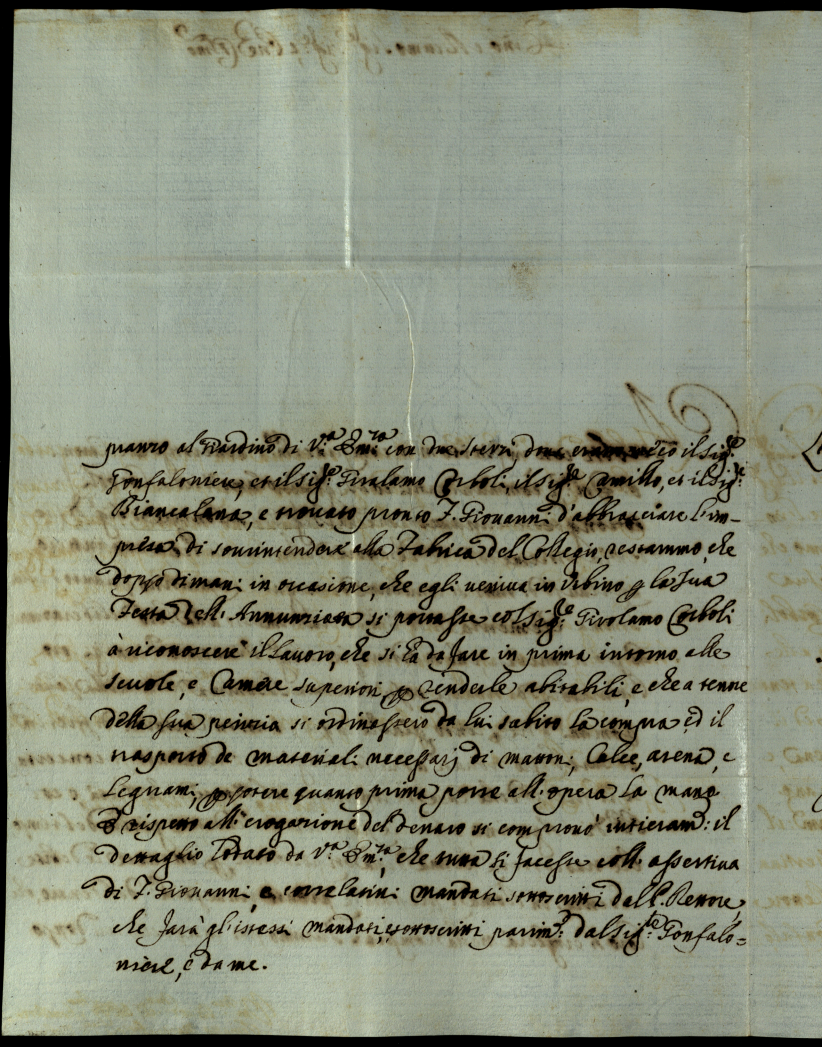 pranzo al Giardino di V.ª Em.za con due sterzi, dove il Sig.re
Gonfaloniere, et il Sig.re Girolamo Corboli, il Sig.re Camillo, et il Sig.re
Biancalana, e trovato pronto F. Giovanni d'abbracciare l'im-
presa di sovrintendere alla Fabrica del Collegio, restammo, che
doppo dimani in occasione, che egli veniva in Urbino p la sua
Festa dell'Annunziata si portasse col Sig.re Girolamo Corboli
à riconoscere il lavoro, che si hà da fare in prima intorno alle
scuole, e Camere superiori p renderle abitabili, e che a tenore
della sua perizia si ordinassero da lui subito la compra ed il
trasporto de materiali necessarj di mattoni, Calce, arena, e
Legnami, p potere quanto prima porre all'opera la mano
E rispetto all'erogazione del denaro si comprovò intieram.: il
dettaglio lodato da V.ª Em.za, che tutto si facesse coll'assertiva
di F. Giovanni, e correlativi mandati sottoscritti dal P. Rettore,
che farà gl'istessi mandati, e sottoscritti parim.: dal Sig.re Gonfalo=
niere, e da me.